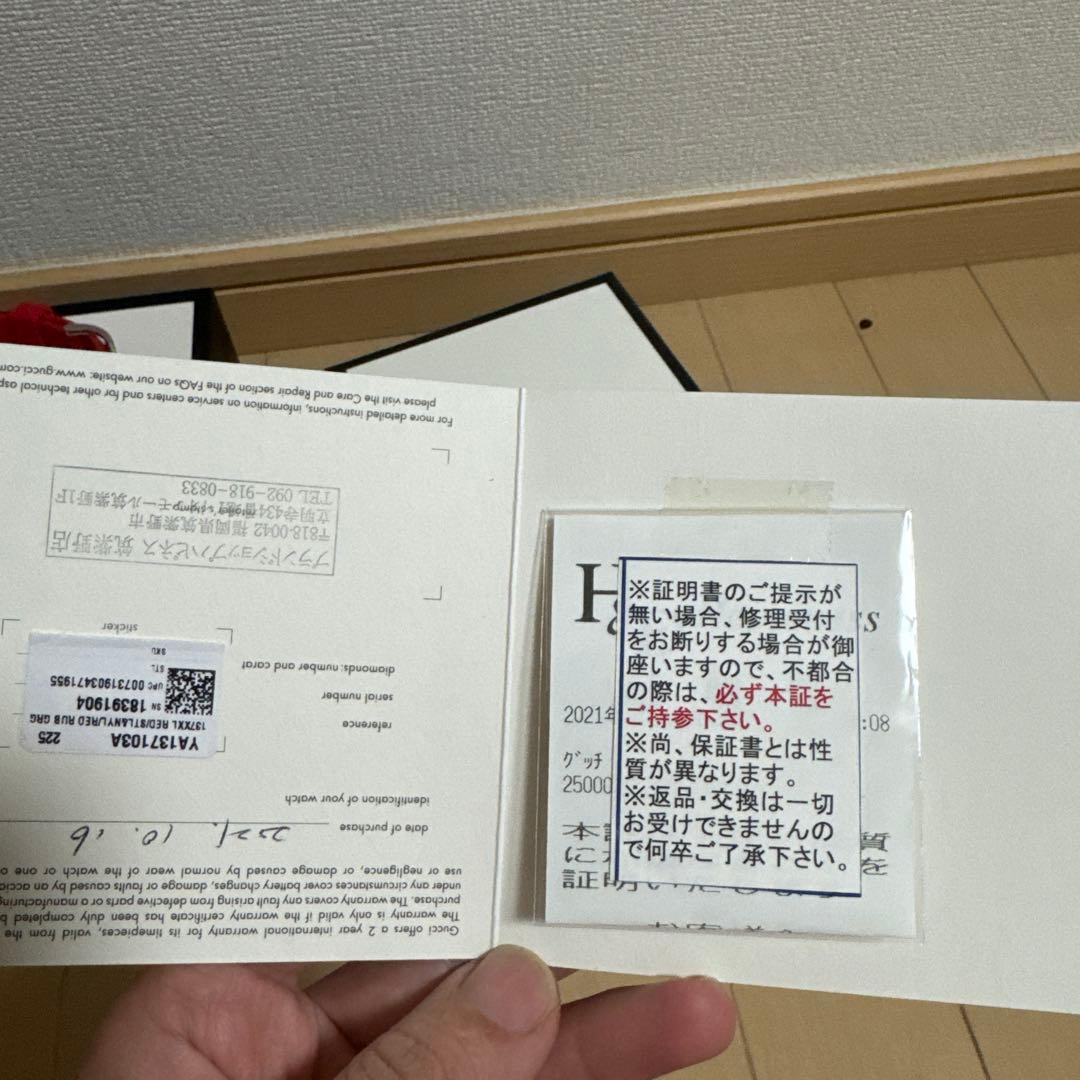 Gucci offers a 2 year international warranty for its timepieces, valid from the
The warranty is only valid if the warranty certificate has been duly completed
purchase. The warranty covers any fault arising from defective parts or a manufacturing
under any circumstances cover battery changes, damage or faults caused by an
use or negligence, or damage caused by normal wear of the watch or one
date of purchase 2021. 10. 16
identification of your watch
reference
serial number
diamonds: number and carat
sticker
YA137103A 225
137XXL RED/STL&NYL/RED RUB GRG
SN 18391904
UPC 00731903471955
STL
SKU
ブランドショップハピネス 筑紫野店
〒818-0042 福岡県筑紫野市
TEL 092-918-0833
For more detailed instructions, information on service centers and for other technical
please visit the Care and Repair section of the FAQs on our website: www.gucci.com
※証明書のご提示が
無い場合、修理受付
をお断りする場合が御
座いますので、不都合
の際は、必ず本証を
ご持参下さい。
※尚、保証書とは性
質が異なります。
※返品・交換は一切
お受けできませんの
で何卒ご了承下さい。
2021年 :08
グッチ
25000